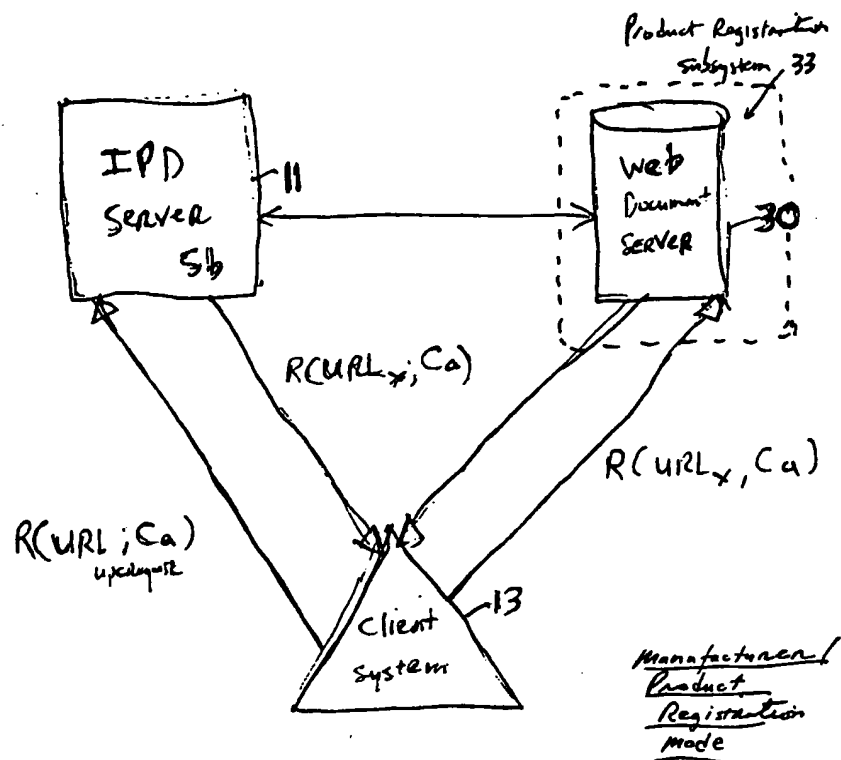 Product Registration
Subsystem 33
IPD
SERVER
11
Web
Document
SERVER
30
R(URLx; Ca)
R(URLx, Ca)
R(URL ; Ca)
Client
System
13
Manufacturer/
Product
Registration
Mode